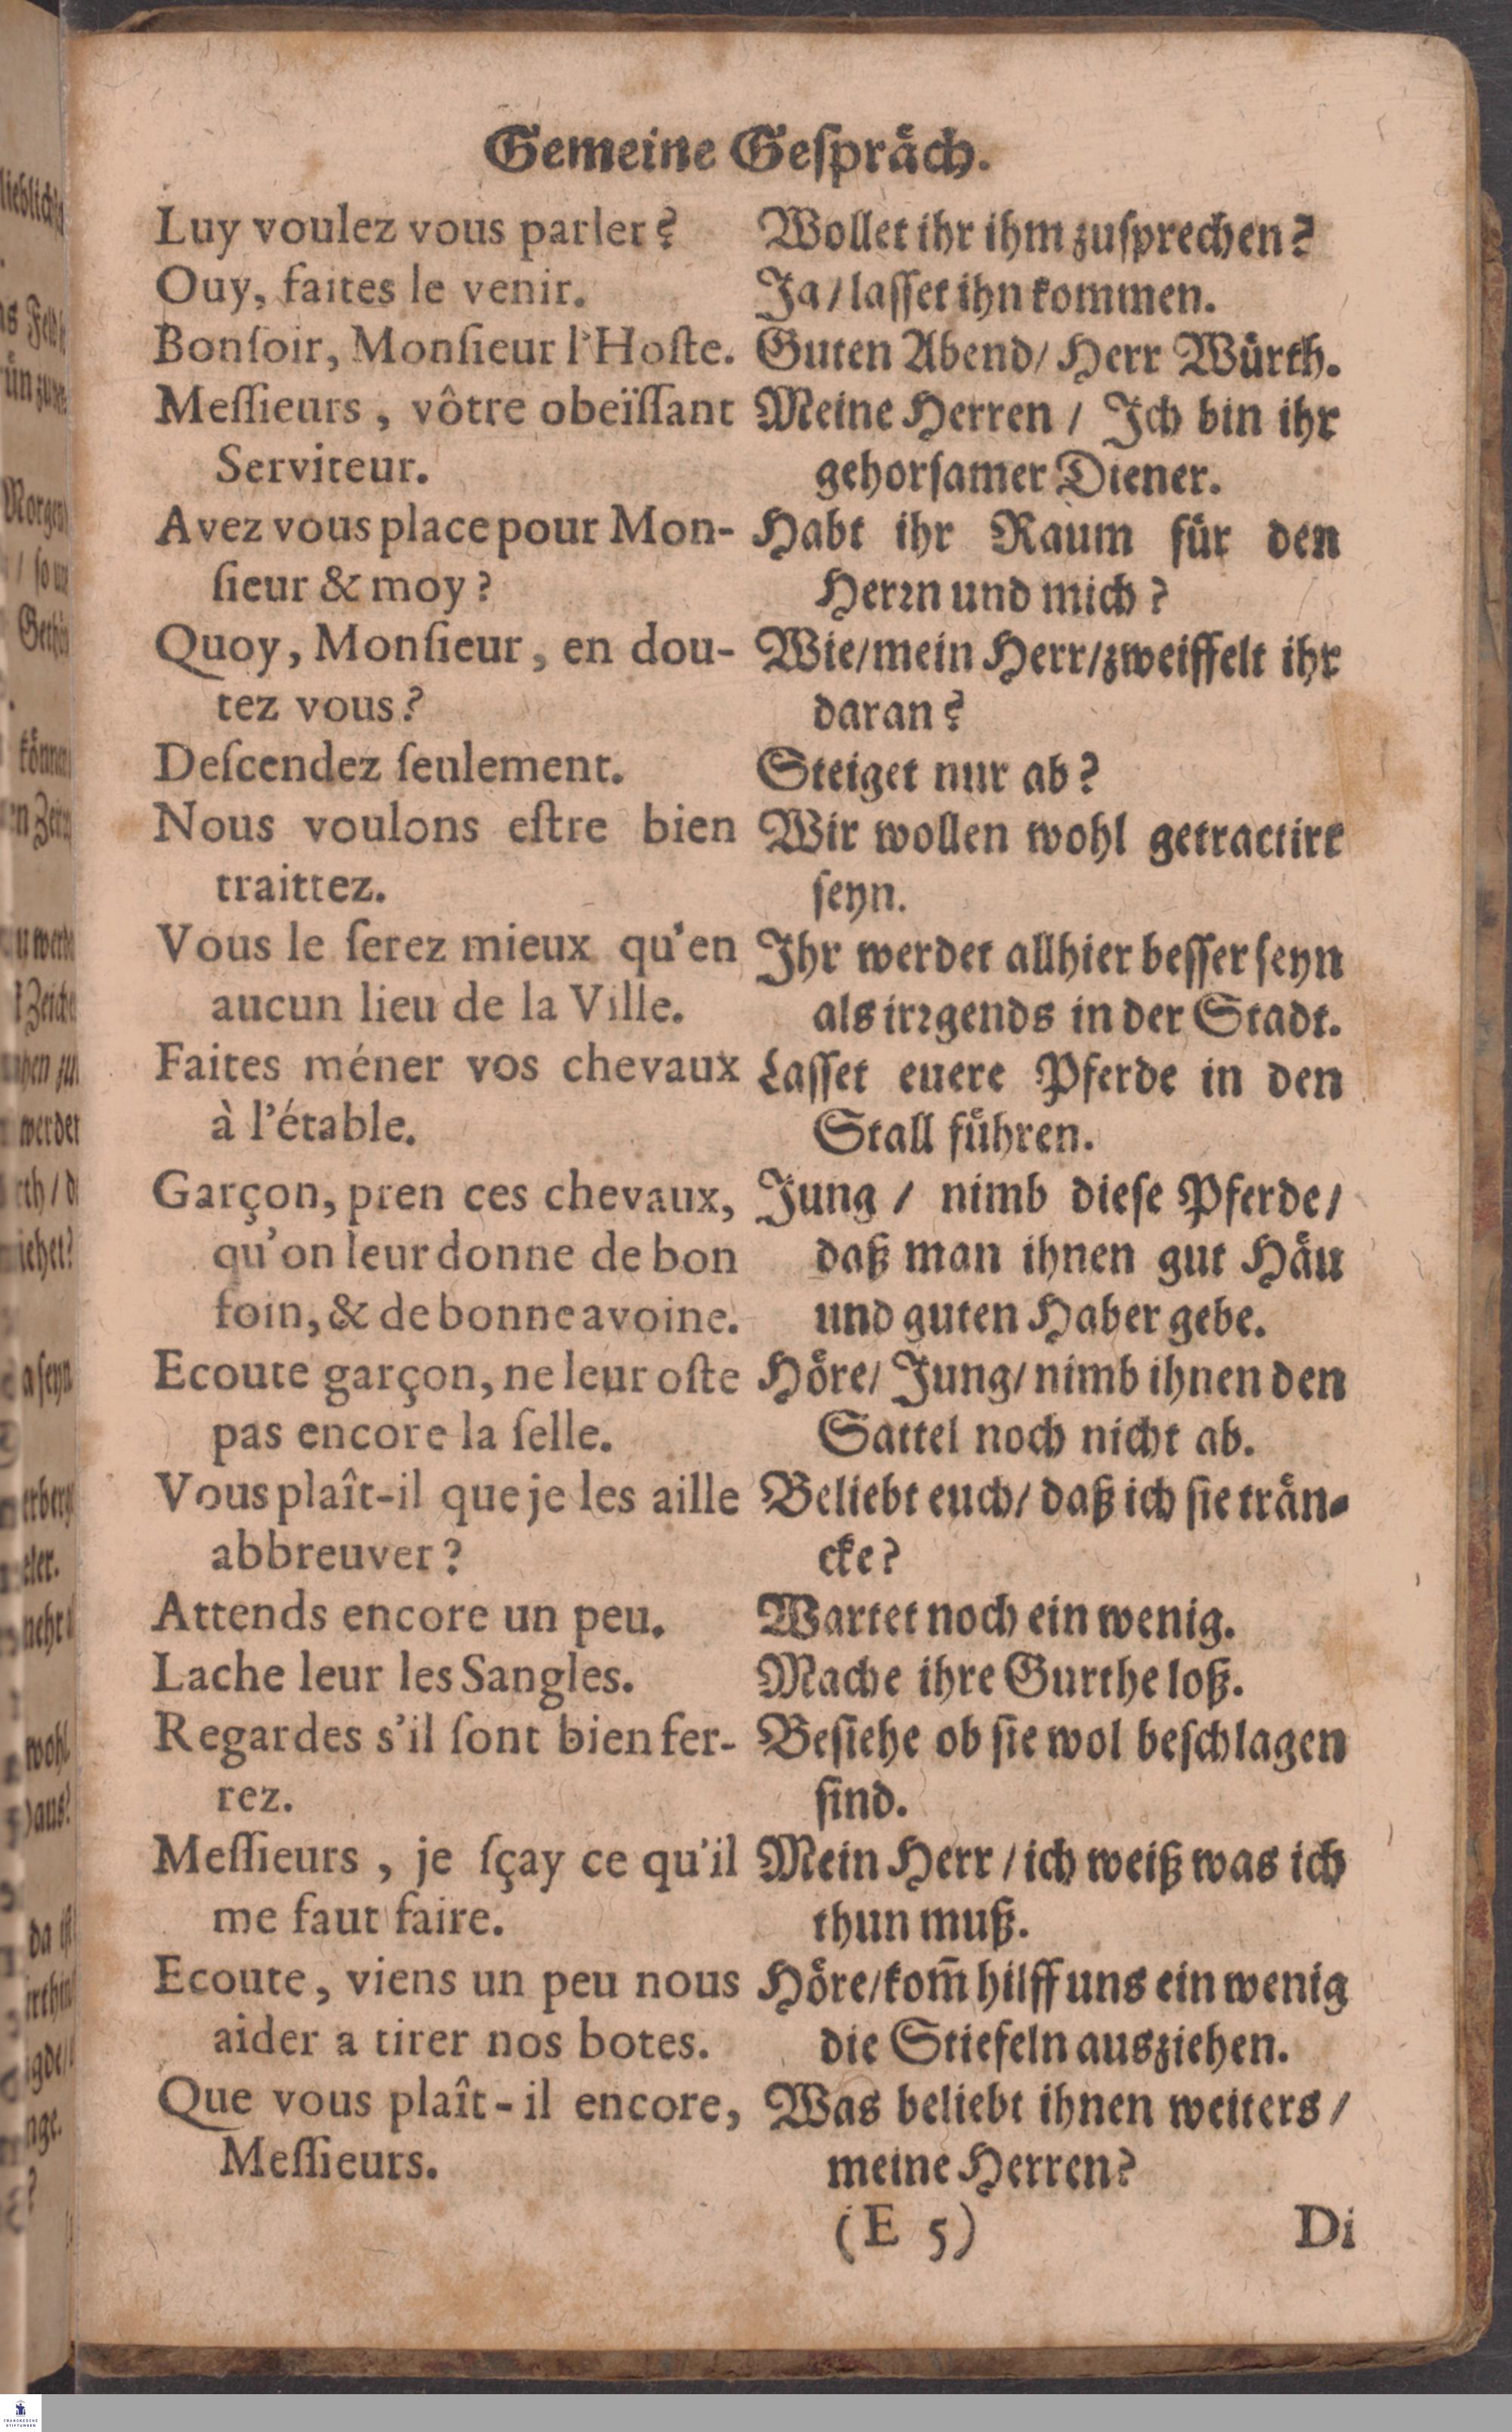 Gemeine Geſpräch.
Luy voulez vous parler?
Ouy, faites le venir.
Bonſoir, Monſieur l'Hoſte.
Meſſieurs, vôtre obeïſſant
Serviteur.
Avez vous place pour Mon-
ſieur & moy?
Quoy, Monſieur, en dou-
tez vous?
Deſcendez ſeulement.
Nous voulons eſtre bien
traittez.
Vous le ſerez mieux qu'en
aucun lieu de la Ville.
Faites méner vos chevaux
à l'étable.
Garçon, pren ces chevaux,
qu'on leur donne de bon
foin, & de bonne avoine.
Ecoute garçon, ne leur oſte
pas encore la ſelle.
Vous plaît-il que je les aille
abbreuver?
Attends encore un peu.
Lache leur les Sangles.
Regardes s'il ſont bien fer-
rez.
Meſſieurs, je ſçay ce qu'il
me faut faire.
Ecoute, viens un peu nous
aider a tirer nos botes.
Que vous plaît-il encore,
Meſſieurs.
Wollet ihr ihm zuſprechen?
Ja/ laſſet ihn kommen.
Guten Abend/ Herr Würth.
Meine Herren / Ich bin ihr
gehorſamer Diener.
Habt ihr Raum für den
Herꝛn und mich?
Wie/mein Herr/zweiffelt ihr
daran?
Steiget nur ab?
Wir wollen wohl getractirt
ſeyn.
Ihr werdet allhier beſſer ſeyn
als irꝛgends in der Stadt.
Laſſet euere Pferde in den
Stall führen.
Jung / nimb dieſe Pferde/
daß man ihnen gut Häu
und guten Haber gebe.
Höre/ Jung/ nimb ihnen den
Sattel noch nicht ab.
Beliebt euch/ daß ich ſie trän-
cke?
Wartet noch ein wenig.
Mache ihre Gurthe loß.
Beſiehe ob ſie wol beſchlagen
ſind.
Mein Herr / ich weiß was ich
thun muß.
Höre/kom̃ hilff uns ein wenig
die Stiefeln ausziehen.
Was beliebt ihnen weiters /
meine Herren?
(E 5)
Di
FRANCKESCHE
STIFTUNGEN